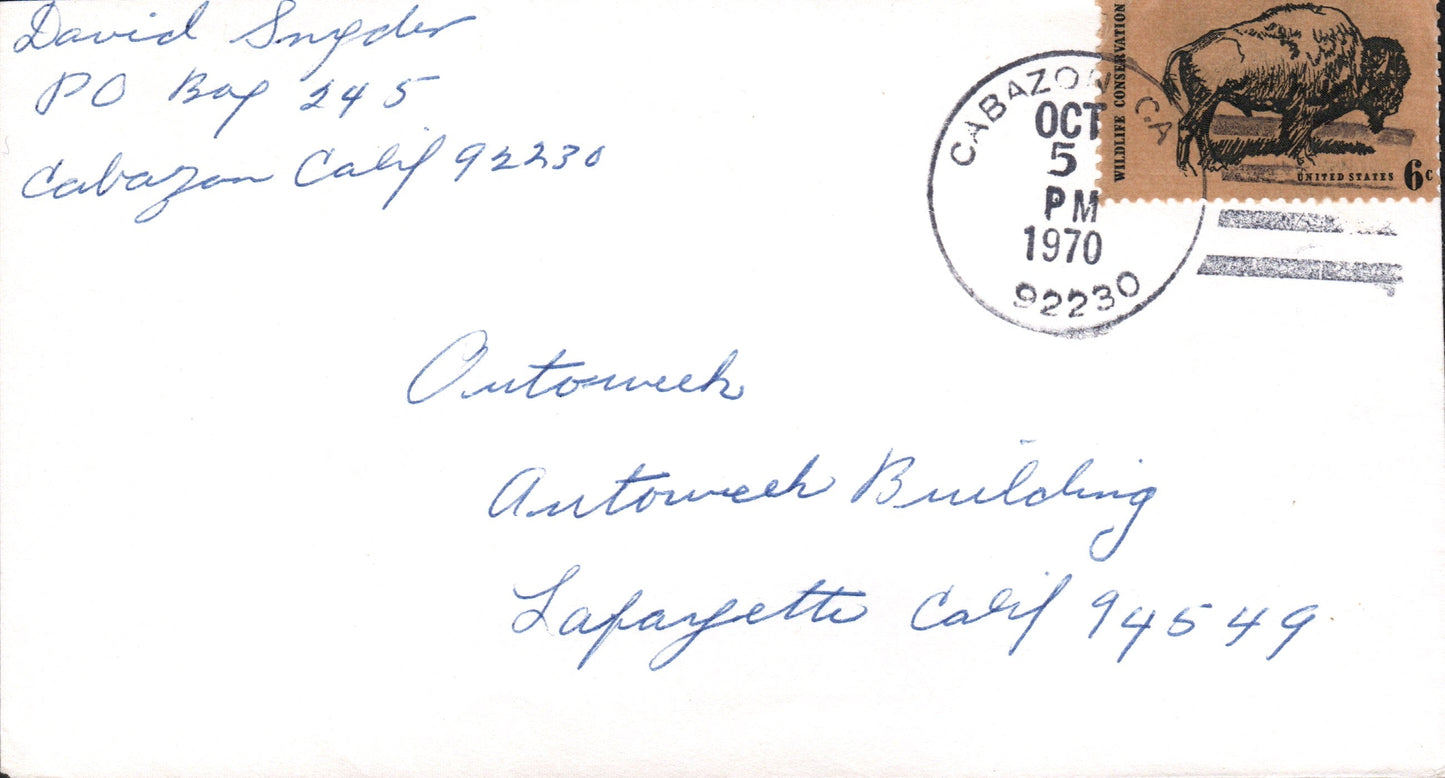 David Snyder
PO Box 245
Cabazon Calif 92230
CABAZON, CA
OCT
5
PM
1970
92230
WILDLIFE CONSERVATION
UNITED STATES 6c
Autoweek
Autoweek Building
Lafayette Calif 94549